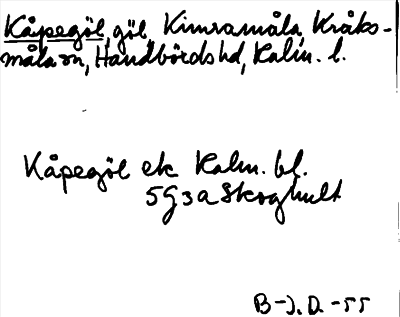 Kåpegöl, göl, Kimramåla, Kråks-
måla sn, Handbörds hd, Kalm. l.
Kåpegöl ek Kalm. bl.
5G3a Skoghult
B-J. D. -55